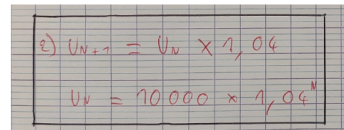 2) U_{N+1} = U_N × 1,04
U_N = 10 000 × 1,04^N